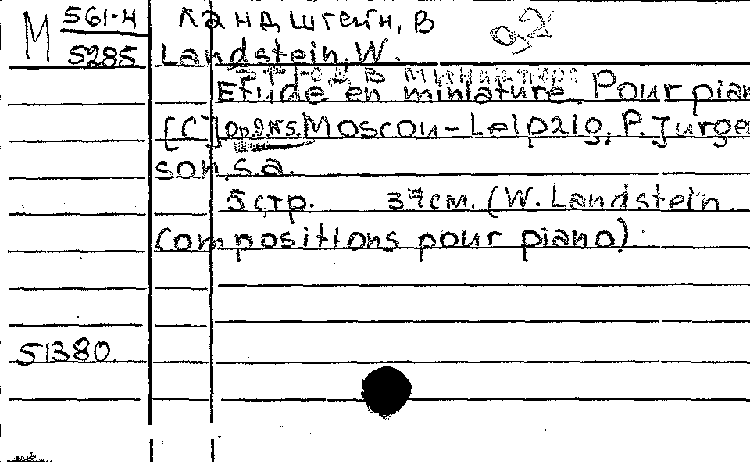 М 561-4 Ландштейн, В
5285 Landstein, W.
Etude en miniature. Pour pian
[C] Op.9.№5. Moscou-Leipzig, P. Jurgen
son, s.a.
5 стр. 37см. (W. Landstein
Compositions pour piano).
51380.